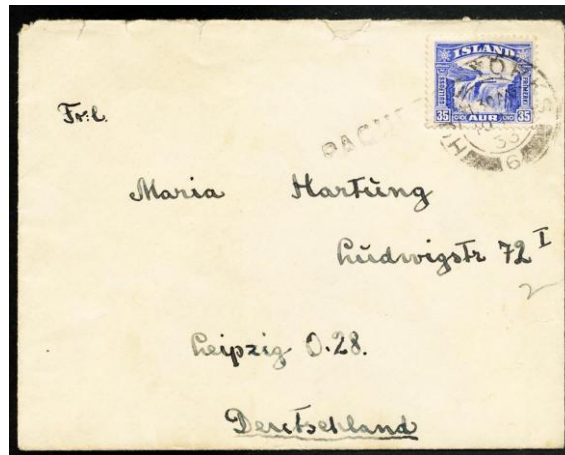 ISLAND
35 AUR 35
Frl.
Maria Hartüng
Lüdwigstr 72 I
Leipzig O.28.
Deutschland